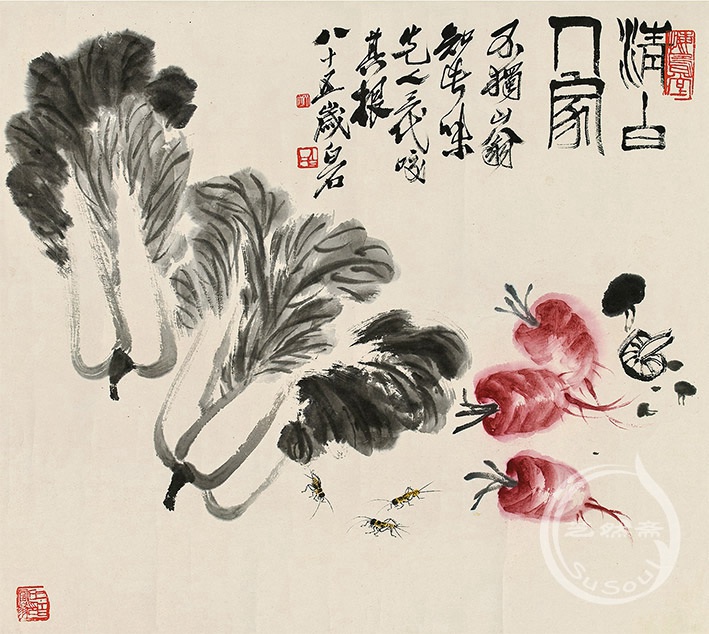 清白
人家
不獨山翁
知此味
先人三代咬
其根
八十五歲白石
SuSoul